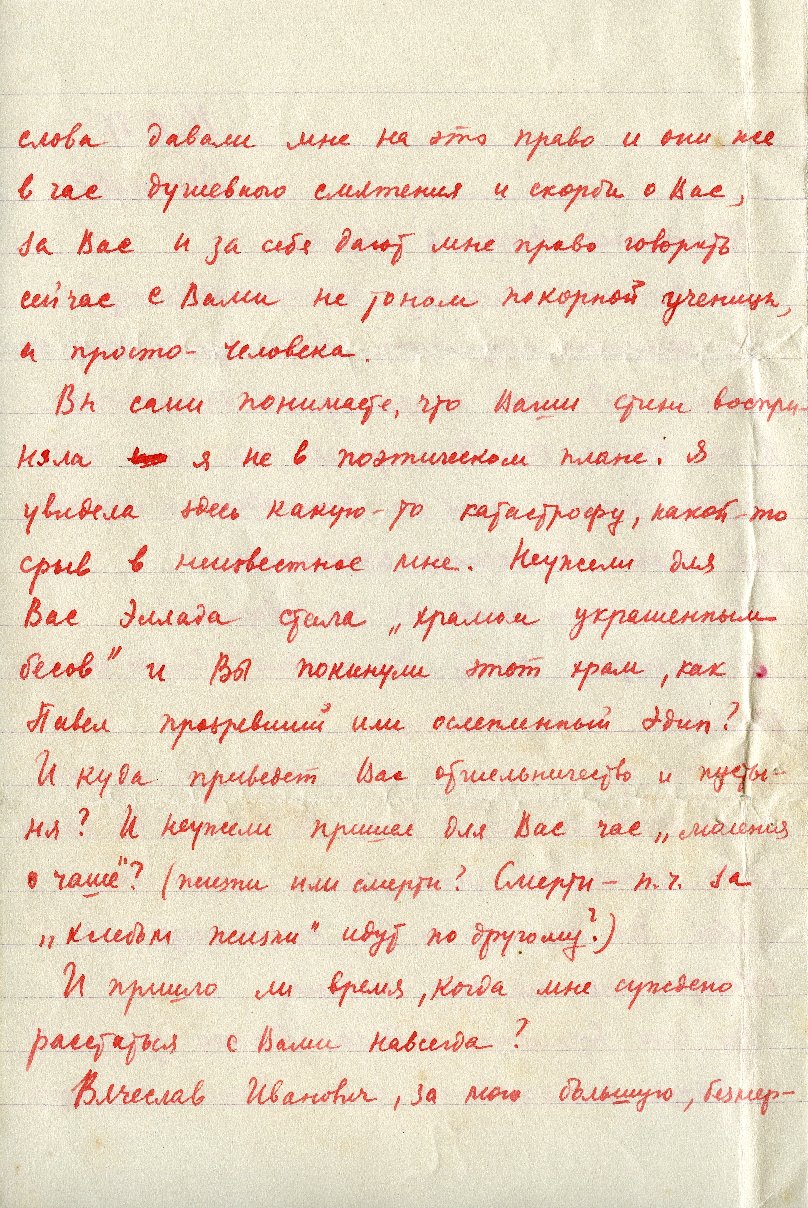 слова давали мне на это право и они же
в час душевного смятения и скорби о Вас,
за Вас и за себя дают мне право говорить
сейчас с Вами не тоном покорной ученицы,
а просто - человека.
Вы сами понимаете, что Ваши стихи воспри-
няла я не в поэтическом плане. Я
увидела здесь какую-то катастрофу, какой-то
срыв в неизвестное мне. Неужели для
Вас Эллада стала „храмом украшенным
бесов" и Вы покинули этот храм, как
Павел прозревший или ослепленный Эдип?
И куда приведет Вас отшельничество и пусты-
ня? И неужели пришел для Вас час „моления
о чаше"? (жизни или смерти? Смерти - п.ч. за
„хлебом жизни" идут по другому?)
И пришло ли время, когда мне суждено
расстаться с Вами навсегда?
Вячеслав Иванович, за мою большую, безмер-